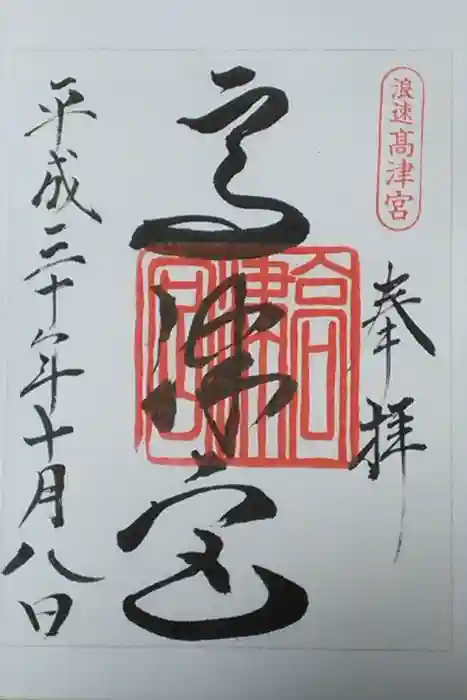 浪速高津宮
奉拝
高津宮
高津宮
平成三十年十月八日